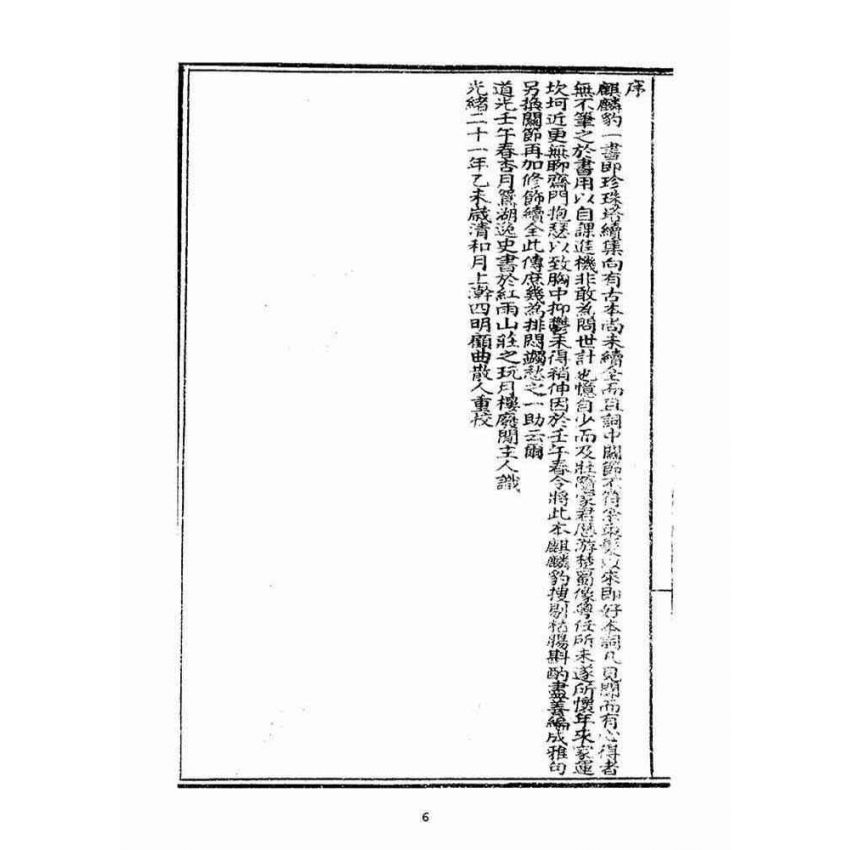 序
麒麟豹一書即珍珠塔續集向有古本尚未續全而且詞中關節不符余束髮以來即好本詞凡見聞而有心得者
無不筆之於書用以自課進機非敢為問世計也憶自少而及壯隨家君歷游楚蜀像粵任所未遂所懷年來家運
坎坷近更無聊齋門抱瑟以致胸中抑鬱未得稍伸因於壬午春令將此本麒麟豹搜剔枯腸斟酌盡善編成雅句
另換關節再加修飾續全此傳庶幾為排悶蠲愁之一助云爾
道光壬午春杏月鴛湖逸史書於紅雨山莊之玩月樓廢閒主人識
光緒二十一年乙未歲清和月上澣四明顧曲散人重校
6